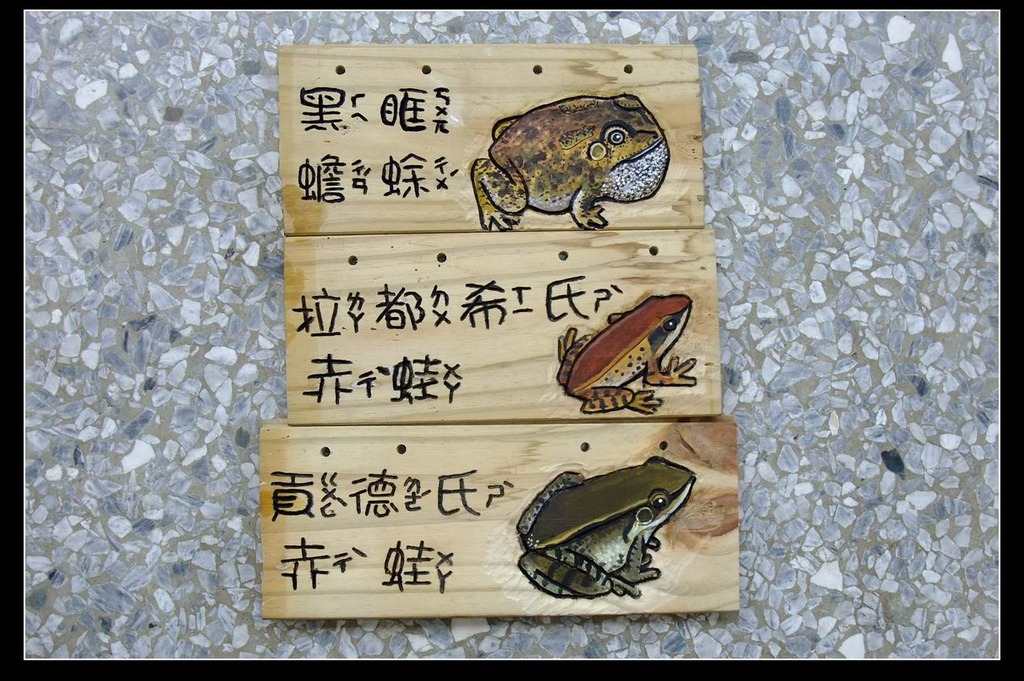 黑ㄏㄟ 眶ㄎㄨㄤ
蟾ㄔㄢˊ 蜍ㄔㄨˊ
拉ㄌㄚ 都ㄉㄨ 希ㄒㄧ 氏ㄕˋ
赤ㄔˋ 蛙ㄨㄚ
貢ㄍㄨㄥˋ 德ㄉㄜˊ 氏ㄕˋ
赤ㄔˋ 蛙ㄨㄚ